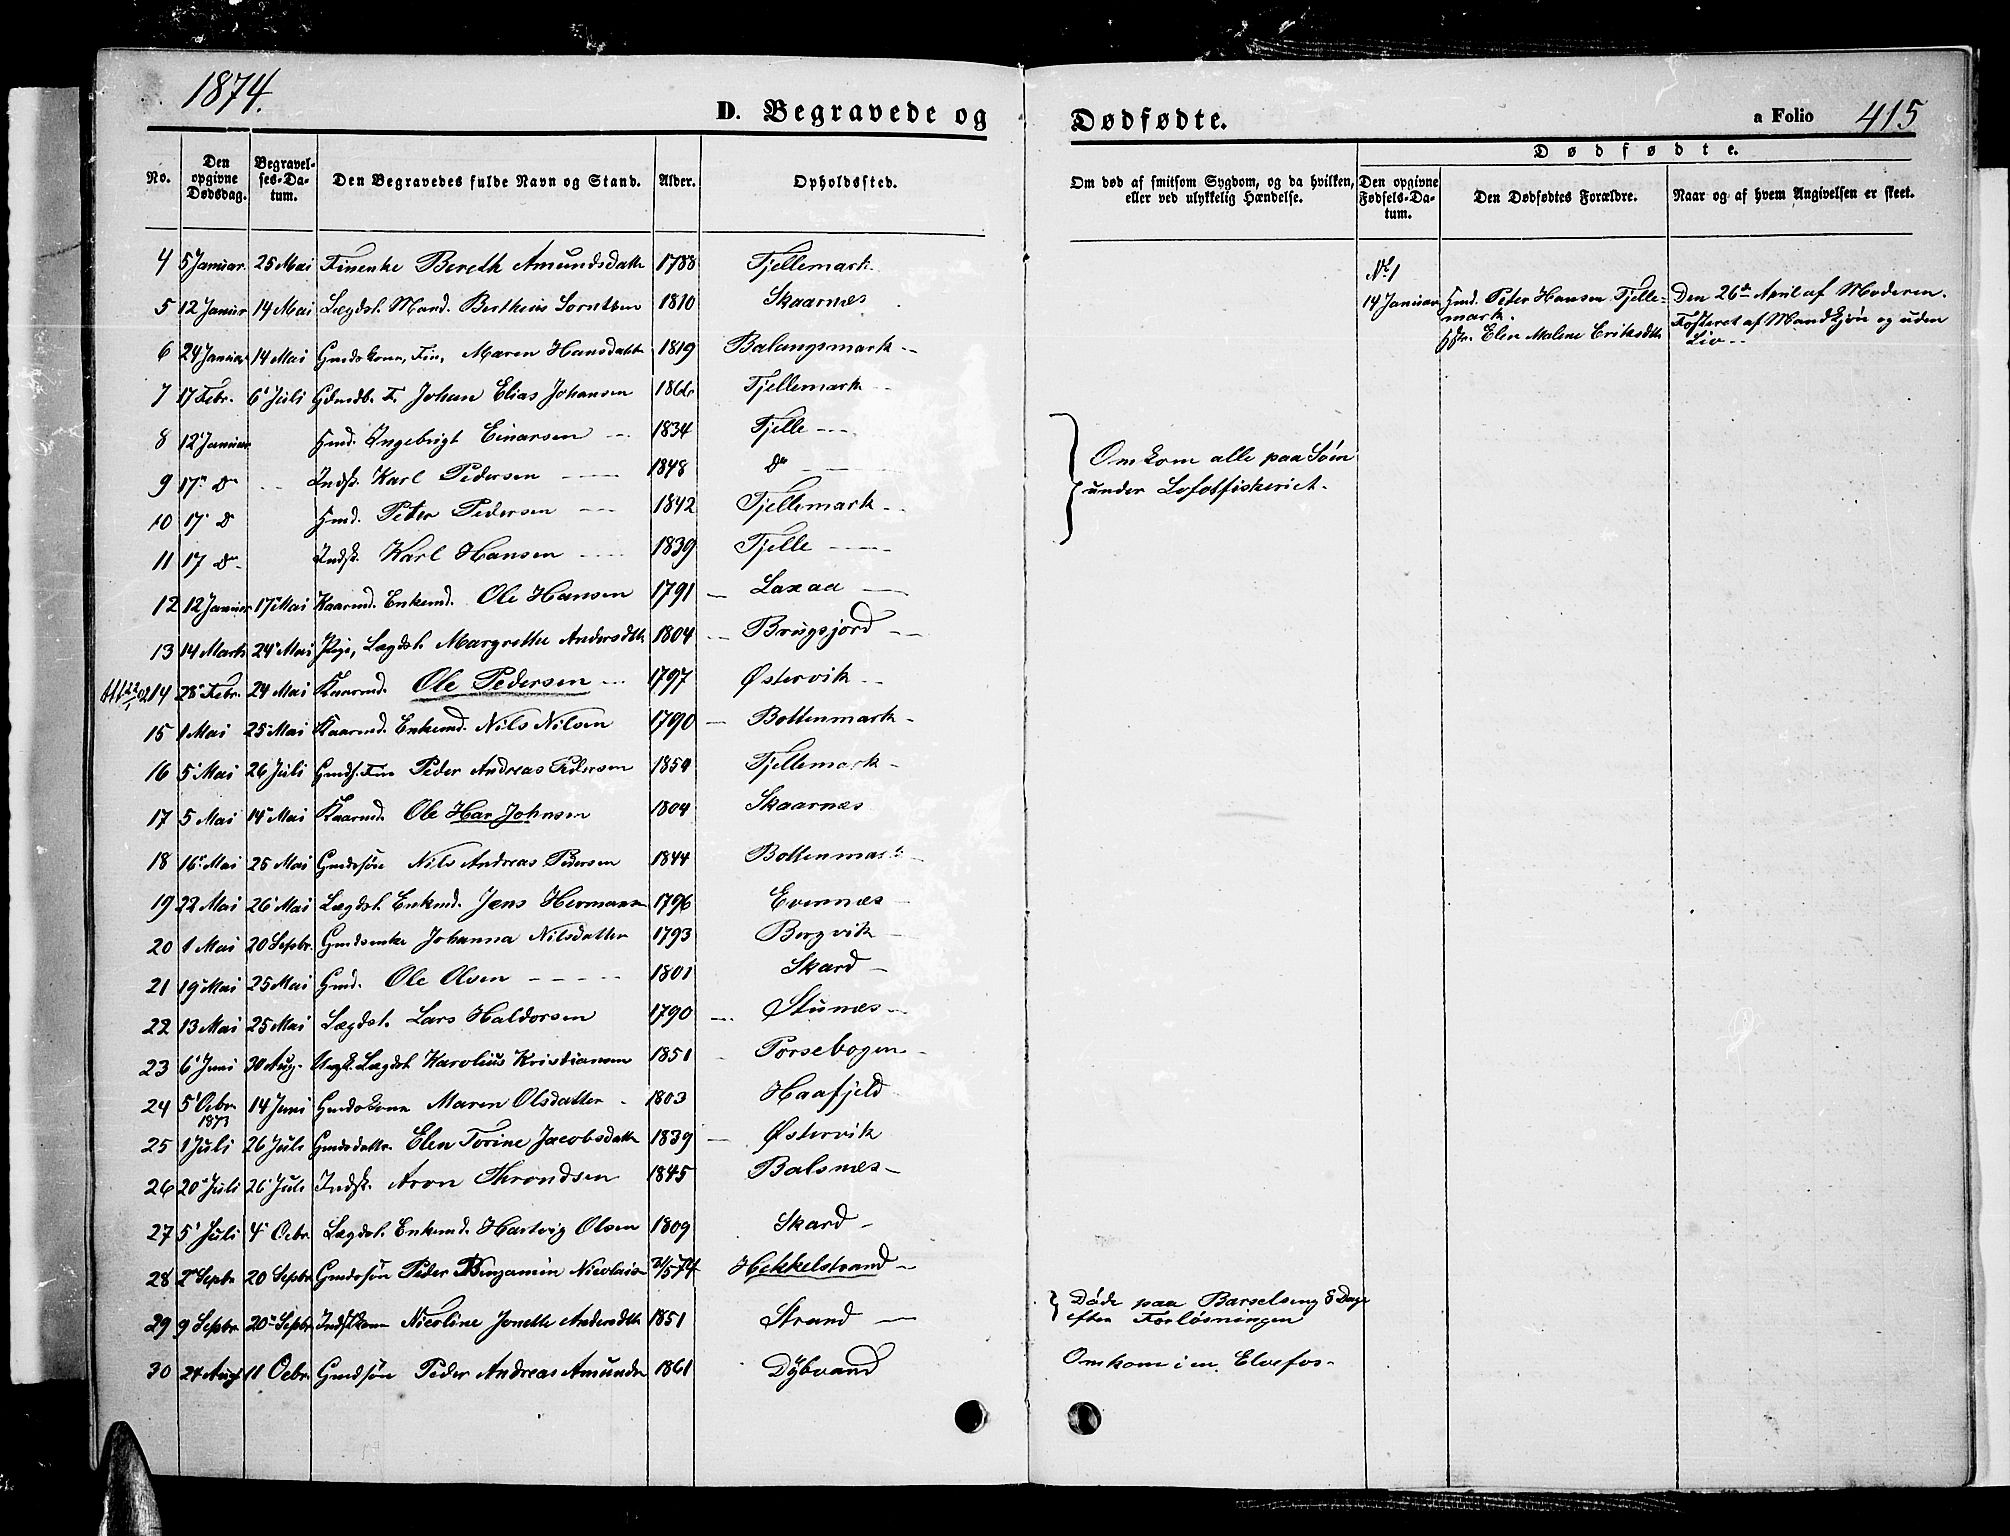 1874.
D. Begravede og
Dødfødte.
a Folio 415
No. Den opgivne Dødsdag. Begravelses-Datum. Den Begravedes fulde Navn og Stand. Alder. Opholdssted.
Om død af smitsom Sygdom, og da hvilken, eller ved ulykkelig Hændelse.
Dødfødte.
Den opgivne Fødsels-Datum. Den Dødfødtes Forældre. Naar og af hvem Angivelsen er skeet.
4 5 Januar 25 Mai Finenke Bereth Amundsdatt 1788 Fjellemark.
5 12 Januar 14 Mai Lægdsl. Mand. Bertheus Sorntsen 1810 Skaarnæs
6 24 Januar 14 Mai Gmdskone, Fin, Maren Hansdatt 1819 Balangsmark
7 17 Febr. 6 Juli F. Johan Elias Johansen Fjellemark
8 12 Januar Hmd. Ingebrigt Einarsen 1834 Fjelle
9 17 Do Indsk. Karl Pedersen 1848 Do
10 17 Do Hmd. Peter Pedersen 1842 Fjellemark
11 17 Do Indsk. Karl Hansen 1839 Fjelle
12 12 Januar 17 Mai Kaarmd. Enkemd. Ole Hansen 1791 Laxaa
13 14 Marts 24 Mai Pige, Lægdsl. Margrethe Andersdtt 1804 Brugsjord
14 28 Febr. 24 Mai Kaarmd. Ole Pedersen 1797 Østervik
15 1 Mai 25 Mai Kaarmd. Enkemd. Nils Nilsen 1790 Bottenmark
16 5 Mai 26 Juli Gmds. Fin Peder Andreas Pedersen 1854 Fjellemark
17 5 Mai 14 Mai Kaarmd. Ole Har Johnsen 1804 Skaarnæs
18 16 Mai 25 Mai Gmdssøn Nils Andreas Pedersen 1844 Bottenmark
19 22 Mai 26 Mai Lægdsl. Enkemd. Jens Hermansn 1796 Evennæs
20 1 Mai 20 Septbr. Gmdsenke Johanna Nilsdatter 1793 Bergvik
21 19 Mai 25 Mai Gmd. Ole Olsen 1801 Skard
22 13 Mai 25 Mai Lægdsl. Lars Haldorsen 1790 Stunæs
23 6 Juni 30 Aug. Ungk. Lægdsl. Karolius Kristiansen 1851 Forsebogen
24 5 Octbr 1873 14 Juni Gmdskone Maren Olsdatter 1803 Haafjeld
25 1 Juli 26 Juli Gmdsdattr. Elen Torine Jacobsdatt 1839 Østervik
26 20 Juli 26 Juli Indsk. Aron Throndsen 1845 Balsnæs
27 5 Juli 4 Octbr Lægdsl. Enkemd. Hartvig Olsen 1809 Skard
28 2 Septbr 20 Septbr Gmdssøn Peder Benjamin Nicolaisn 2/5 74 Hekkelstrand
29 9 Septbr 20 Septbr Indstkone Nicoline Jonette Andersdtt 1851 Strand
30 24 Aug 11 Octbr. Gmdssøn Peder Andreas Amundsn 1861 Dybvand
Omkom alle paa Søen
under Lofotfiskeriet.
Døde paa Barselseng 8 Dage
efter Forløsningen
Omkom i en Elvefos.
No 1
14 Januar Hmd. Peter Hansen Fjelle-
mark.
Elen Malene Eriksdtt
Den 26de April af Moderen.
Fosteret af Mandkjøn og uden
Liv